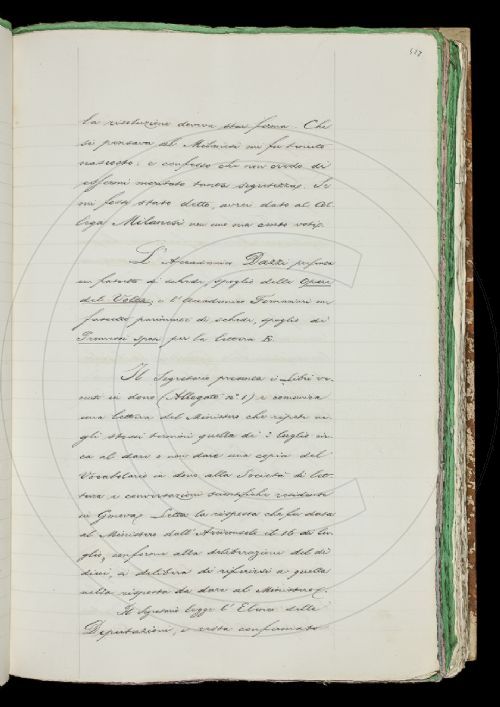 la risoluzione doveva star ferma. Che
si pensava al Milanesi mi fu tenuto
nascosto: e confesso che non credo di
essermi meritato tanta segretezza. Se
mi fosse stato detto, avrei dato al Col-
lega Milanesi non uno ma cento voti.
L'Accademico Dazzi presenta
un fascetto di schede, spoglio delle Opere
del Cellini, e l'Accademico Tommaseo un
fascetto parimente di schede, spoglio di
per la lettera E.
Il Segretario presenta i Libri ve-
nuti in dono (Allegato n.° 1) e comunica
una lettera del Ministero che ripete ne-
gli stessi termini quella de' 2 luglio cir-
ca al dare o non dare una copia del
Vocabolario in dono alla Società di let-
tura e conversazioni scientifiche residente
in Genova. Letta la risposta che fu data
al Ministero dall'Arciconsolo il 16 di lu-
glio, conforme alla deliberazione del dì
dieci, si delibera di riferirsi a quella
nella risposta da dare al Ministero.
Il Segretario legge l'Elenco delle
Deputazioni, e resta confermato